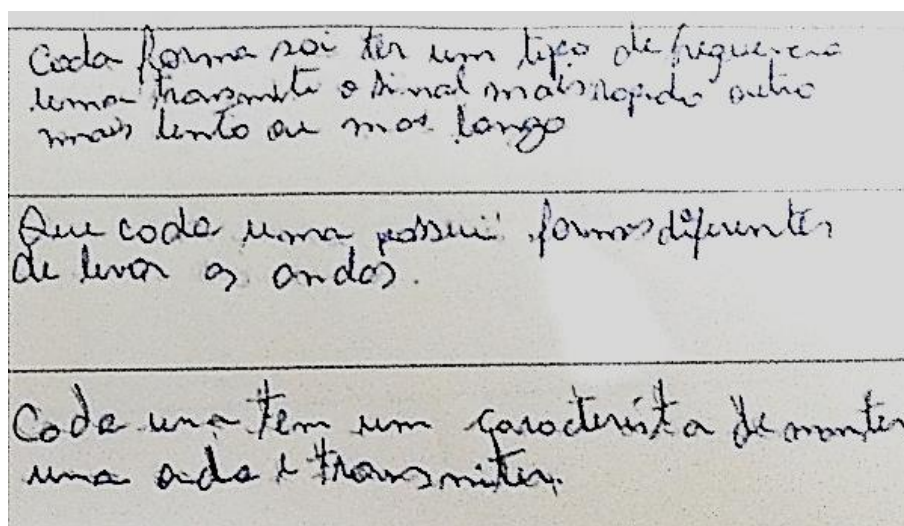 Cada forma vai ter um tipo de frequencia
uma transmite o sinal mais rapido outro
mais lento ou mas longo
Que cada uma possui formas diferentes
de levar as ondas.
Cada uma tem um caracterista de manter
uma onda e transmiter.